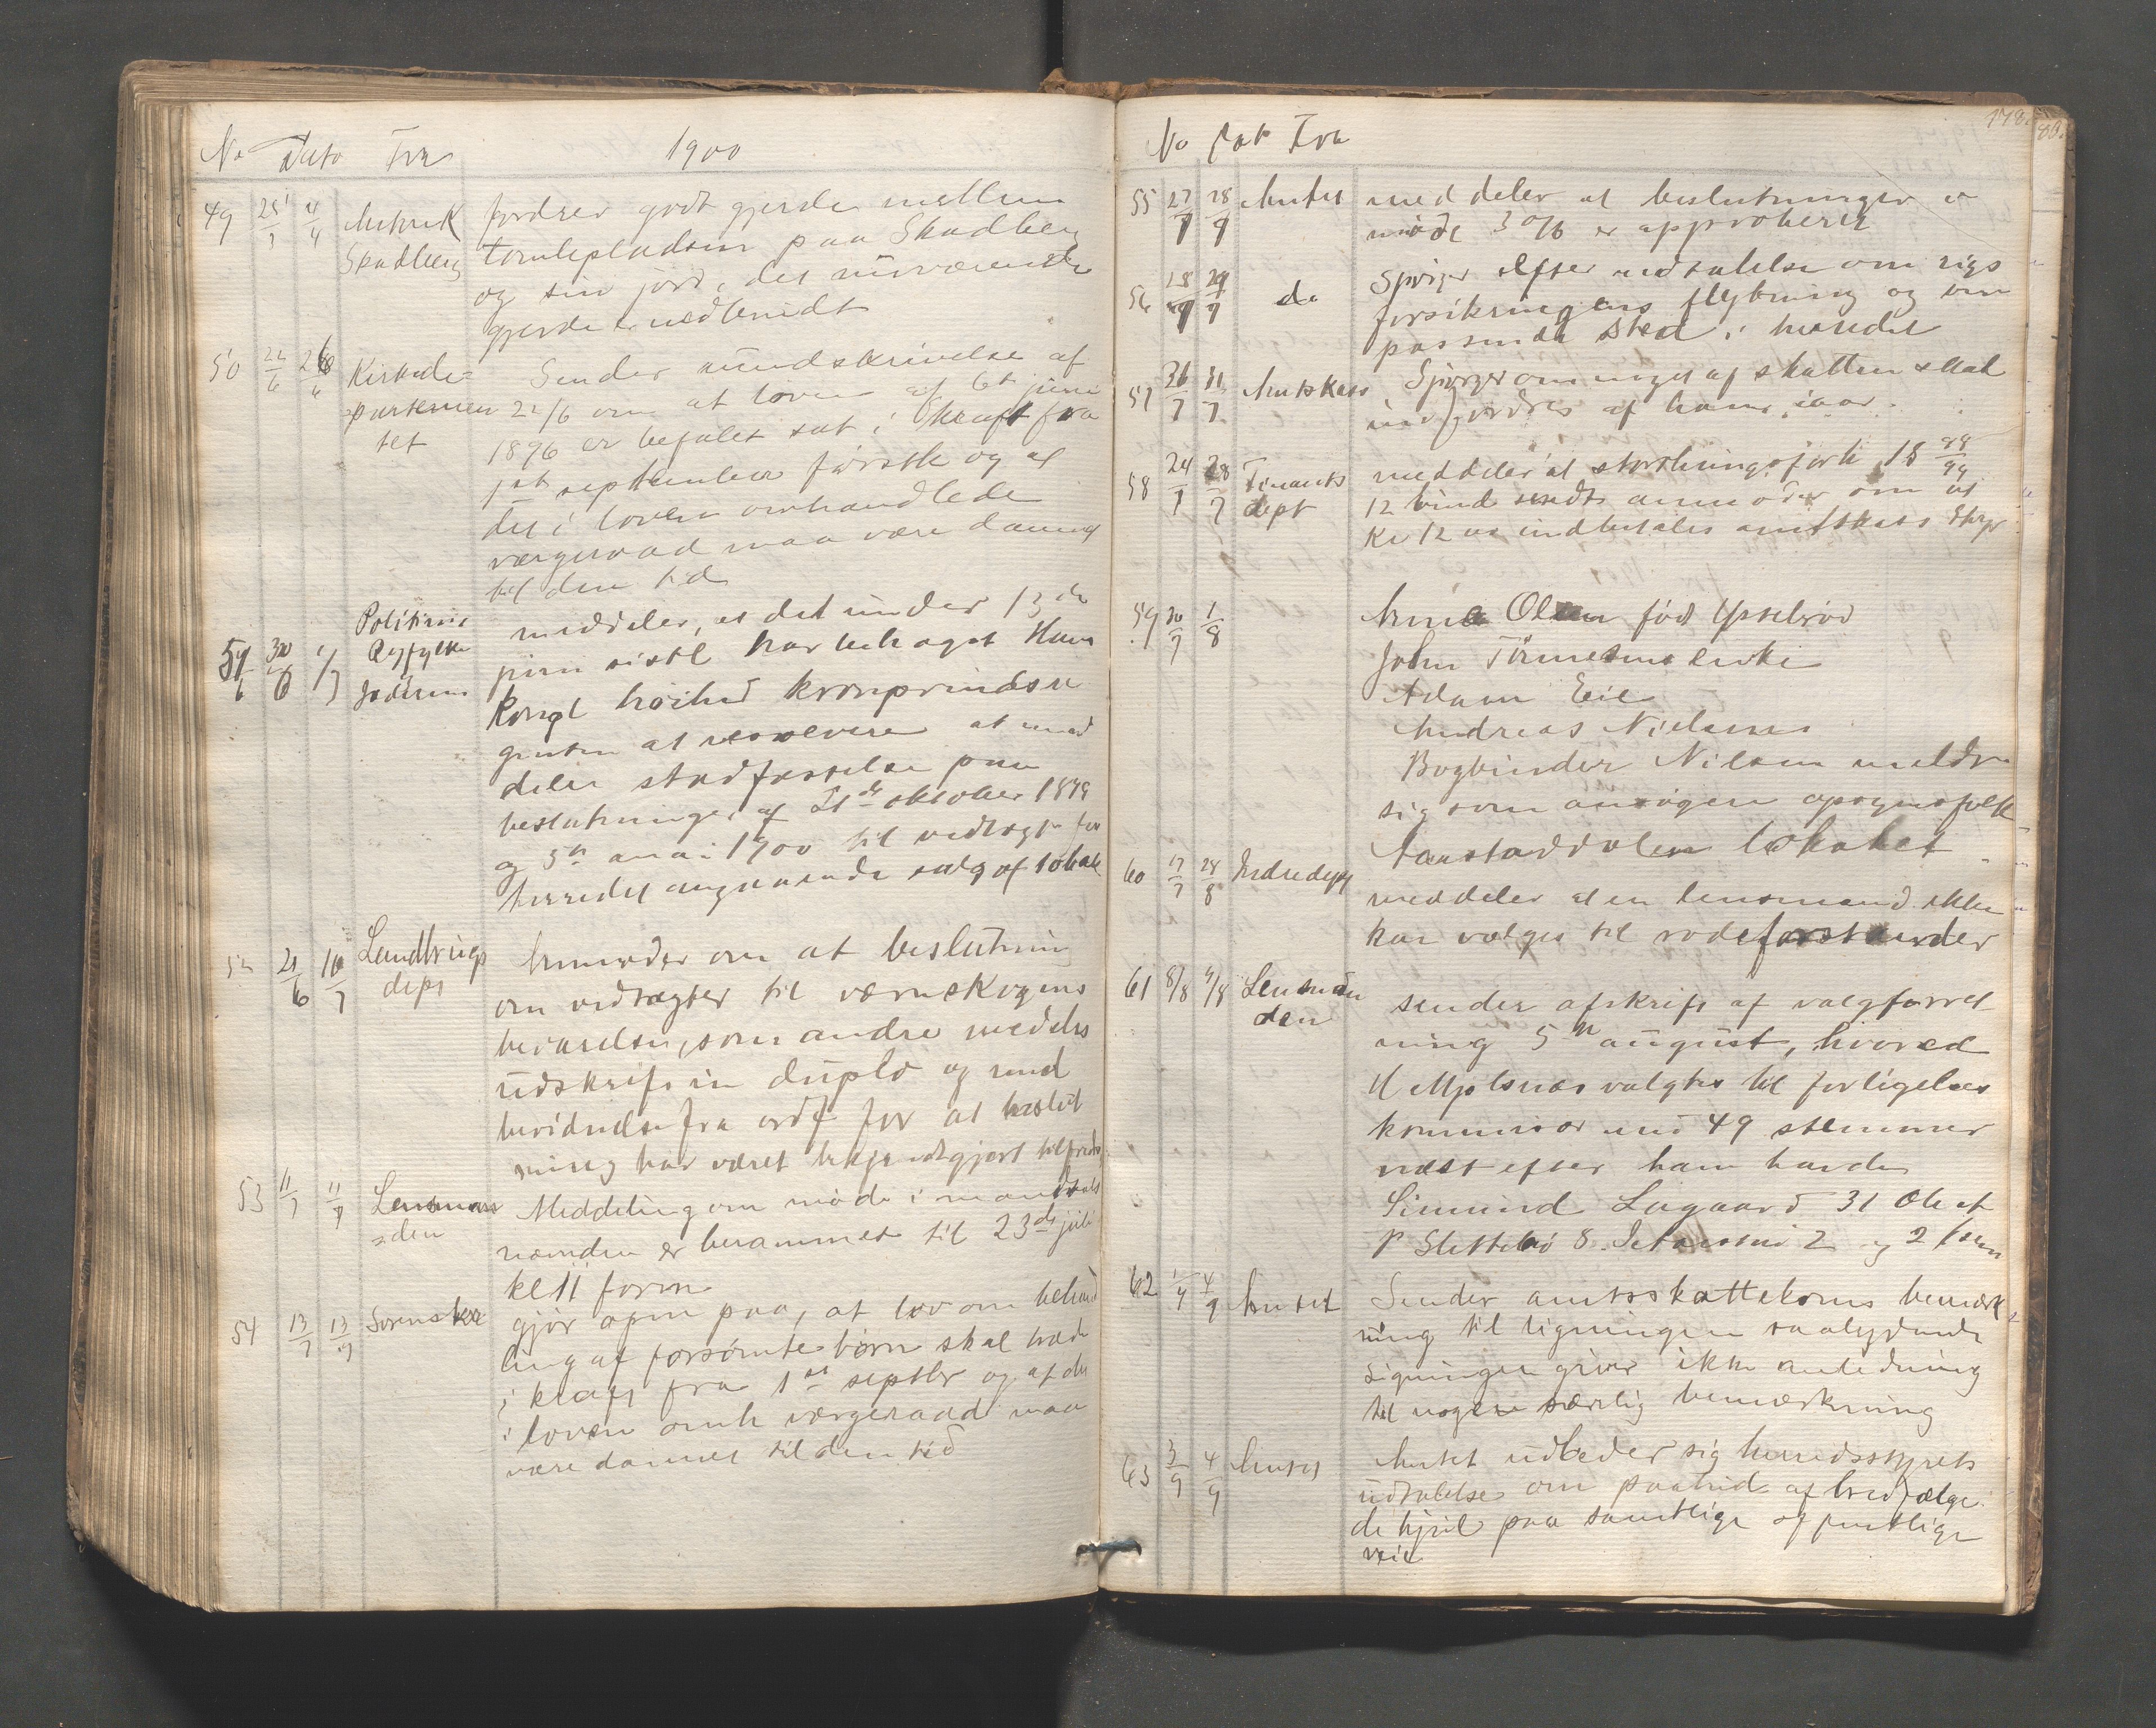 No Dato Fra 1900
49 25/1 4/4 fordrer godt gjerde mellem
Skadberg tomtepladsen paa Skadberg
og sin jord, det nuværende
gjerde er nedbrudt
50 22/6 26/6 Kirkede= Sender rundskrivelse af
partemen 22/6 om at loven af 6te juni
tet 1896 er befalet sat i kraft fra
1st september førstk og at
det i loven omhandlede
værgeraad maa være dannet
til den tid
Politimes meddeler, at det under 13de
51 30/6 1/7 Ryfylke juni sistl har behaget Hans
Jæderen kongl høihed kronprindsre
genten at resolvere at med
dele stadfæstelse paa
beslutninger af 21de oktober 1899
og 5te mai 1900 til vedtægt for
herredet angaaende salg af tobak
52 21/6 10/7 Landbrugs Anmoder om at beslutning
dept om vedtægter til værnskogens
bevarelse, som andre meddeles
udskrift in duplo og med
bevidnelse fra ordf for at beslut
ning har været bekjendtgjort tilfreds
53 11/7 11/7 Lensman Meddeling om møde i mandtals
=den nævnden er berammet til 23de juli
kl 11 form
54 13/7 13/7 Sorenskr gjør opm paa, at lov om behand
ling af forsømte børn skal træde
i kraft fra 1st septbr og at det
i loven omh værgeraad maa
være dannet til den tid
No Dat Fra 178. 80.
55 27/7 28/7 Amtet meddeler at beslutninger i
møde 30/6 er approberet
56 28/7 29/7 do Spørger efter udtalelse om rigs
forsikringens flytning og om
passende sted i herredet
57 26/7 31/7 Amtskass Spørger om noget af skatten skal
indfordres af ham iaar
58 24/7 28/7 Finants meddeler at storthingsforh 18 98/99
dept 12 bind sendt anmoder om at
Kr 12 00 indbetales amtskass
59 30/7 1/8 Anna Olsen fød Ysstebrød
John Tønnesens enke
Adam Eie
Andreas Nielsens
Bogbinder Nilsen melder
sig som ansøgere opsynsfolk
Aarstaddalen lokalet
60 17/7 24/8 Indredept
meddeler at en lensmand ikke
kan vælges til rodeforstander
61 8/8 9/8 Lensman sender afskrift af valgforret
den ning 5te august, hvored
M Mjølsnæs valgtes til forligelses
kommissær med 49 stemmer
næst efter ham havde
Simund Lagaard 31
P Slettebø 8. 2 og 2
62 1/9 4/9 Amtet Sender amtsskattekoms bemærk
ning til ligningen saalydende
Ligningen giver ikke anledning
til nogen særlig bemærkning
63 3/9 4/9 Amtet Amtet udbeder sig herredsstyrets
udtalelse om paabud af bredfælge
de hjul paa samtlige offentlige
veie